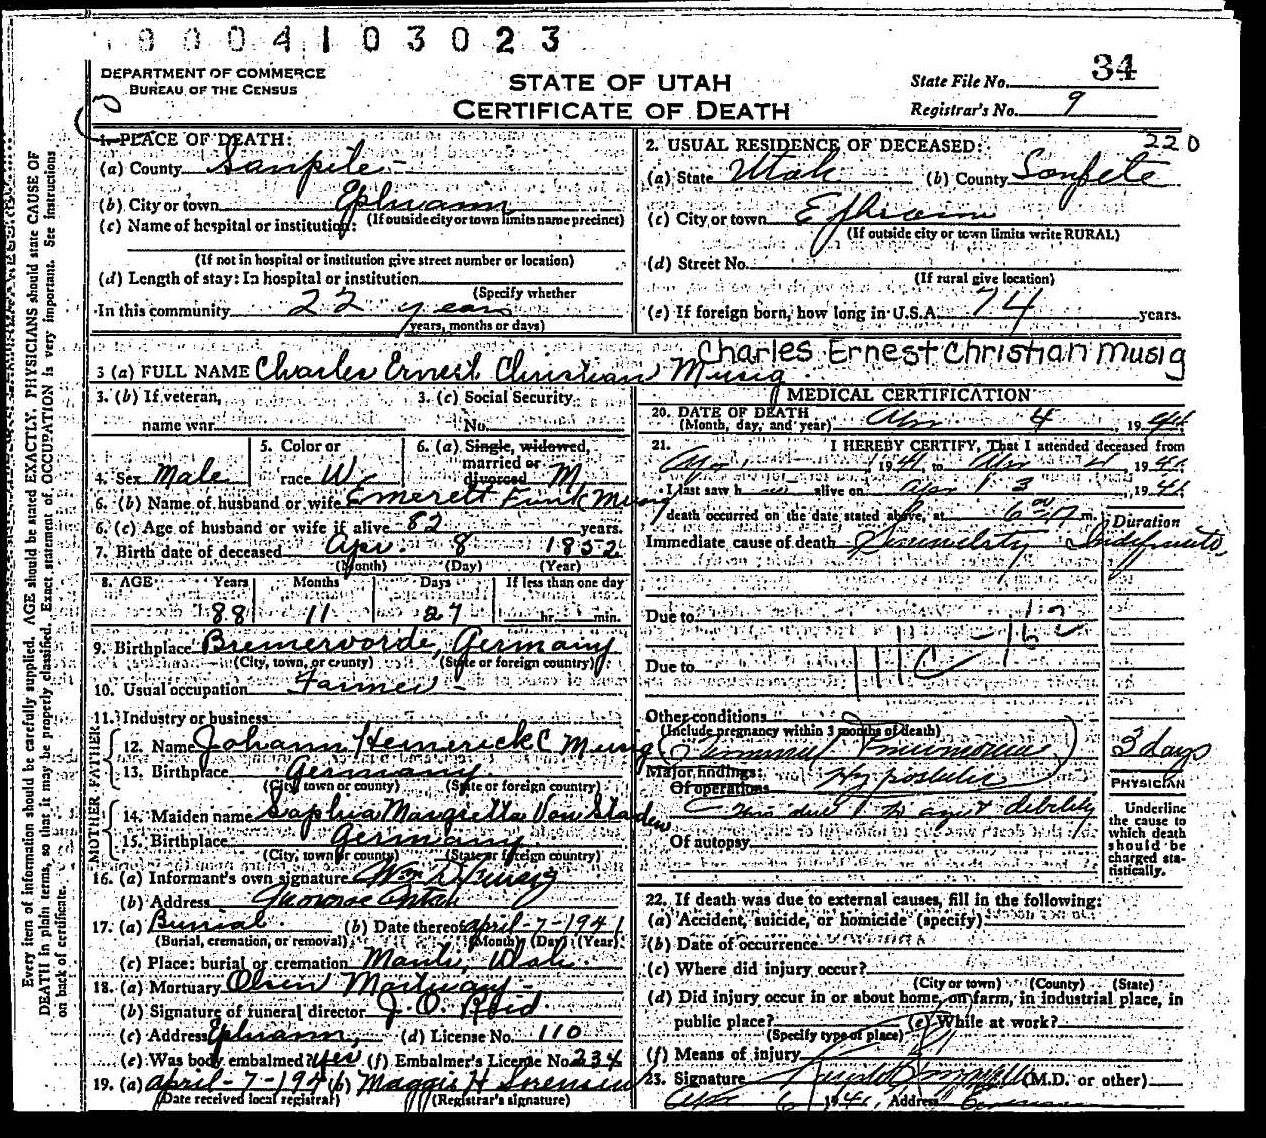 0004103023
DEPARTMENT OF COMMERCE
BUREAU OF THE CENSUS
STATE OF UTAH
CERTIFICATE OF DEATH
State File No. 34
Registrar's No. 9
220
1. PLACE OF DEATH:
(a) County Sanpete
(b) City or town Ephraim
(If outside city or town limits name precinct)
(c) Name of hospital or institution:
(If not in hospital or institution give street number or location)
(d) Length of stay: In hospital or institution
(Specify whether
In this community 22 years
years, months or days)
2. USUAL RESIDENCE OF DECEASED:
(a) State Utah (b) County Sanpete
(c) City or town Ephraim
(If outside city or town limits write RURAL)
(d) Street No.
(If rural give location)
(e) If foreign born, how long in U.S.A. 74 years.
Charles Ernest Christian Musig
3 (a) FULL NAME Charles Ernest Christian Musig
3. (b) If veteran,
name war
3. (c) Social Security
No.
4. Sex Male
5. Color or
race W
6. (a) Single, widowed,
married or
divorced M
6. (b) Name of husband or wife Emerett Funk Musig
6. (c) Age of husband or wife if alive 82 years.
7. Birth date of deceased Apr. 8 1852
(Month) (Day) (Year)
8. AGE Years Months Days If less than one day
88 11 27 hr. min.
9. Birthplace Bremervorde, Germany
(City, town, or county) (State or foreign country)
10. Usual occupation Farmer
11. Industry or business
FATHER
12. Name Johann Heinerick C Musig
13. Birthplace Germany
(City town or county) (State or foreign country)
MOTHER
14. Maiden name Saphia Margretta Von Staden
15. Birthplace Germany
(City, town or county) (State or foreign country)
16. (a) Informant's own signature Wm D Musig
(b) Address Monroe Utah
17. (a) Burial (b) Date thereof April-7-1941
(Burial, cremation, or removal) (Month) (Day) (Year)
(c) Place: burial or cremation Manti, Utah.
18. (a) Mortuary Olsen Mortuary
(b) Signature of funeral director J. O. Reid
(c) Address Ephraim, (d) License No. 110
(e) Was body embalmed? Yes (f) Embalmer's License No. 234
19. (a) April-7-1941 (b) Maggie H Sorensen
(Date received local registrar) (Registrar's signature)
MEDICAL CERTIFICATION
20. DATE OF DEATH
(Month, day, and year) Apr 4 1941
21. I HEREBY CERTIFY, That I attended deceased from
Apr 1941 to Apr 1941.
I last saw h alive on Apr 3, 1941
death occurred on the date stated above, at m.
Duration
Immediate cause of death Indefinite
Due to
162
Due to
Other conditions
(Include pregnancy within 3 months of death)
(Terminal Pneumonia) 3 days
Major findings: Hypostatic
Of operations
This due to age & debility
Of autopsy
PHYSICIAN
Underline
the cause to
which death
should be
charged sta-
tistically.
22. If death was due to external causes, fill in the following:
(a) Accident, suicide, or homicide (specify)
(b) Date of occurrence
(c) Where did injury occur?
(City or town) (County) (State)
(d) Did injury occur in or about home, on farm, in industrial place, in
public place? (e) While at work?
(Specify type of place)
(f) Means of injury
23. Signature (M.D. or other)
Apr 6 1941, Address Ephraim
Every item of information should be carefully supplied. AGE should be stated EXACTLY. PHYSICIANS should state CAUSE OF
DEATH in plain terms, so that it may be properly classified. Exact statement of OCCUPATION is very important. See instructions
on back of certificate.